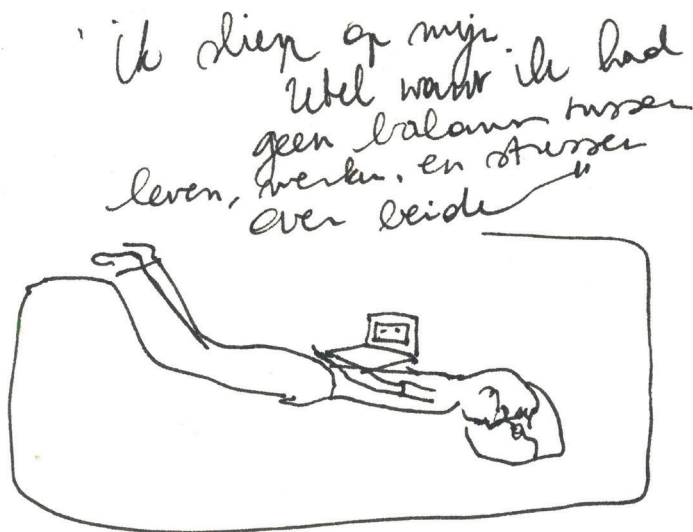 'ik sliep op mijn
Zetel want ik had
geen balans tussen
leven, werken, en stressen
over beide"